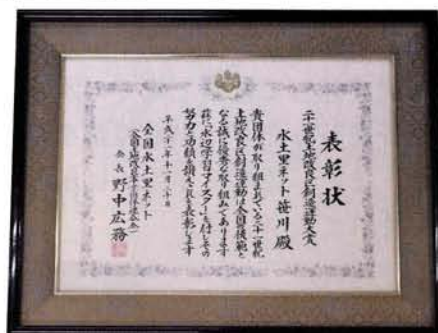 表彰状
二十一世紀土地改良区創造運動大賞
水土里ネット笹川殿
貴団体が取り組まれている二十一世紀
土地改良区創造運動は全国の模範と
なる誠に優秀な取り組みであります
茲に水辺学習マイスターを付しその
努力と功績を讃えこれを表彰します
平成二十年十一月二十日
全国水土里ネット
会長 野中広務